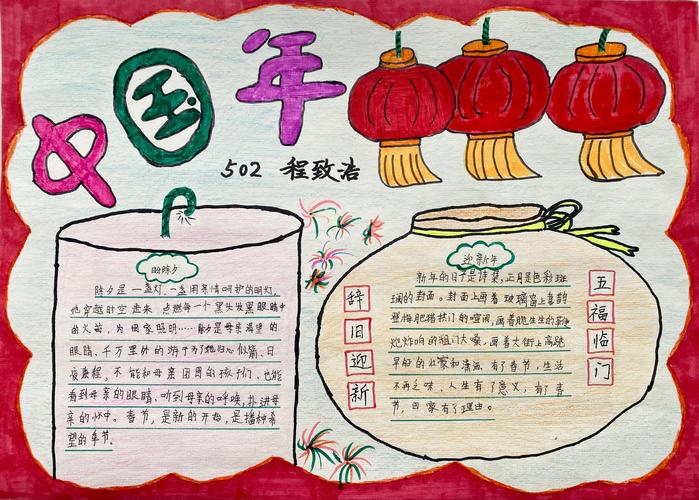 中国年
502 程致浩
盼除夕
除夕是一盏灯,一盏用亲情呵护的明灯,
他穿越时空而来,点燃每一个黑头发黑眼睛中
的火苗,为回家照明……除夕是母亲渴望的
眼睛,千万里外的游子为了她归心似箭,日
夜兼程,不能和母亲团圆的孩子们,也能
看到母亲的眼睛、听到母亲的呼唤,扑进母
亲的怀中。春节,是新的开始,是播种希
望的季节。
辞旧迎新
迎新年
新年的日子是诗集,正月是色彩斑
斓的封面。封面上画着玻璃窗上喜鹊
登梅肥猪拱门的喧闹,画着胆生生的
炮炸响的祖门大嗓,画着大街上高跷
旱船的壮家和潇洒,有了春节,生活
不再乏味,人生有了意义,有了春
节,回家有了理由。
五福临门